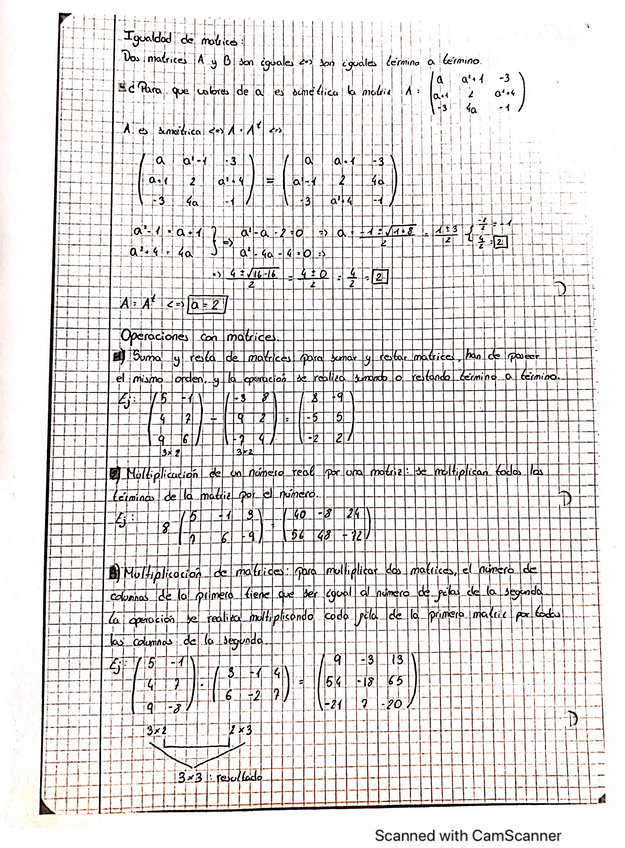 Igualdad de matrices:
Dos matrices A y B son iguales <=> son iguales término a término.
Para que valores de a es simétrica la matriz A = ( a a²-1 -3
a+1 2 a²+4
-3 4a -1 )
A es simétrica <=> A = Aᵗ <=>
( a a²-1 -3 ) = ( a a+1 -3 )
( a+1 2 a²+4 ) ( a²-1 2 4a )
( -3 4a -1 ) ( -3 a²+4 -1 )
a²-1 = a+1 } => a²-a-2=0 => a = -1±√1+8 / 2 = 1±3 / 2 { -2/2 = -1
a²+4 = 4a a²-4a-4=0 => 4/2 = 2
=> 4±√16-16 / 2 = 4±0 / 2 = 4/2 = 2
A = Aᵗ <=> a = 2
Operaciones con matrices.
1) Suma y resta de matrices para sumar y restar matrices, han de poseer
el mismo orden, y la operación se realiza sumando o restando término a término.
Ej: ( 5 -1 ) - ( -3 8 ) = ( 8 -9 )
( 4 7 ) ( 9 2 ) ( -5 5 )
( 9 6 ) ( -7 4 ) ( -2 2 )
3x2 3x2
2) Multiplicación de un número real por una matriz: se multiplican todos los
términos de la matriz por el número.
Ej: 8 ( 5 -1 3 ) = ( 40 -8 24 )
( 7 6 -9 ) ( 56 48 -72 )
3) Multiplicación de matrices: para multiplicar dos matrices, el número de
columnas de la primera tiene que ser igual al número de filas de la segunda.
La operación se realiza multiplicando cada fila de la primera matriz por todas
las columnas de la segunda.
Ej: ( 5 -1 ) · ( 3 -1 4 ) = ( 9 -3 13 )
( 4 7 ) ( 6 -2 7 ) ( 54 -18 65 )
( 9 -8 ) ( -21 7 -20 )
3x2 2x3
3x3: resultado
Scanned with CamScanner